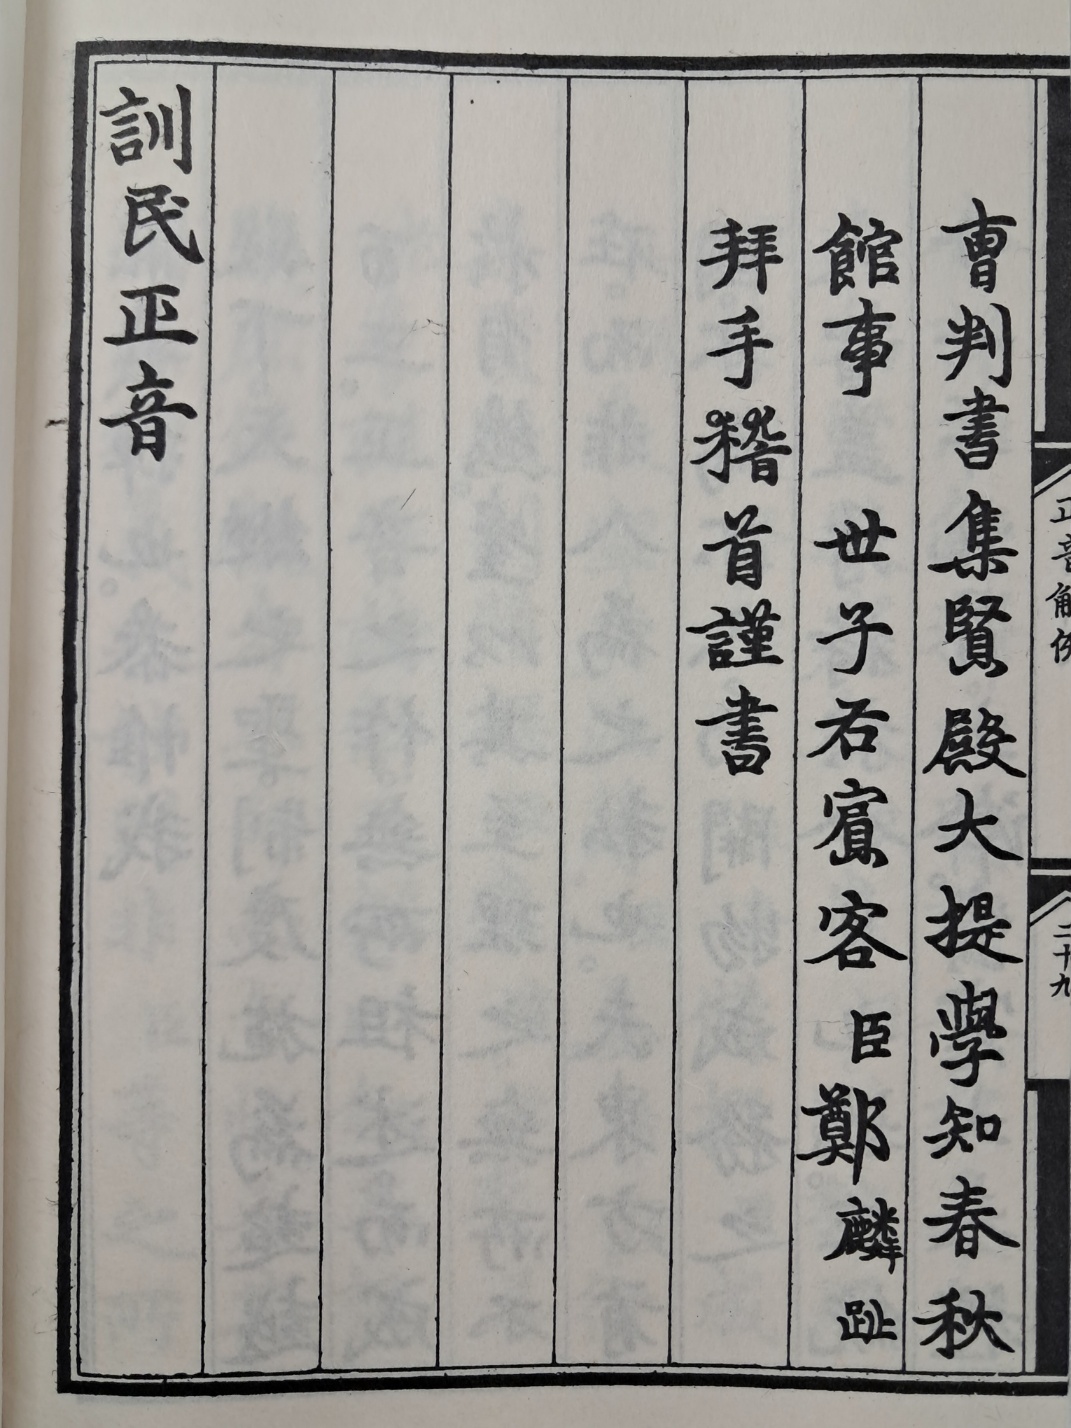 正音解例
二十九
曺判書集賢殿大提學知春秋
館事 世子右賔客臣鄭麟趾
拜手稽首謹書
訓民正音